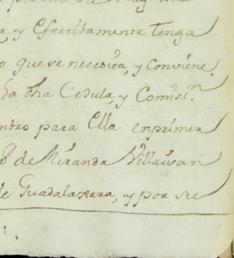 a y Efectibamente tenga
o que se necesita y conviene.
ha dha Cedula, y Comis.ⁿ
para Ella en primer
de Miranda Villaisan
de Guadalaxara, y por su